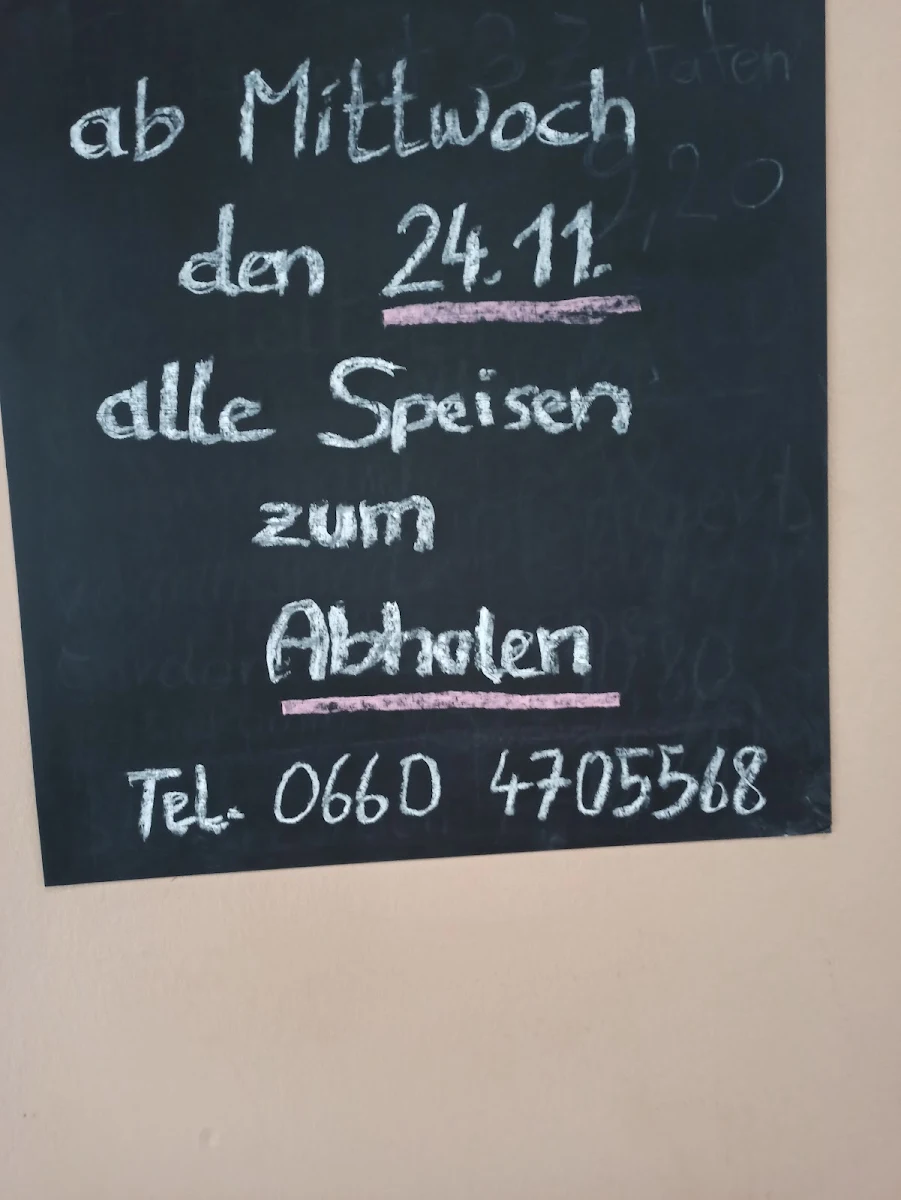 ab Mittwoch
den 24.11.
alle Speisen
zum
Abholen
Tel. 0660 4705568